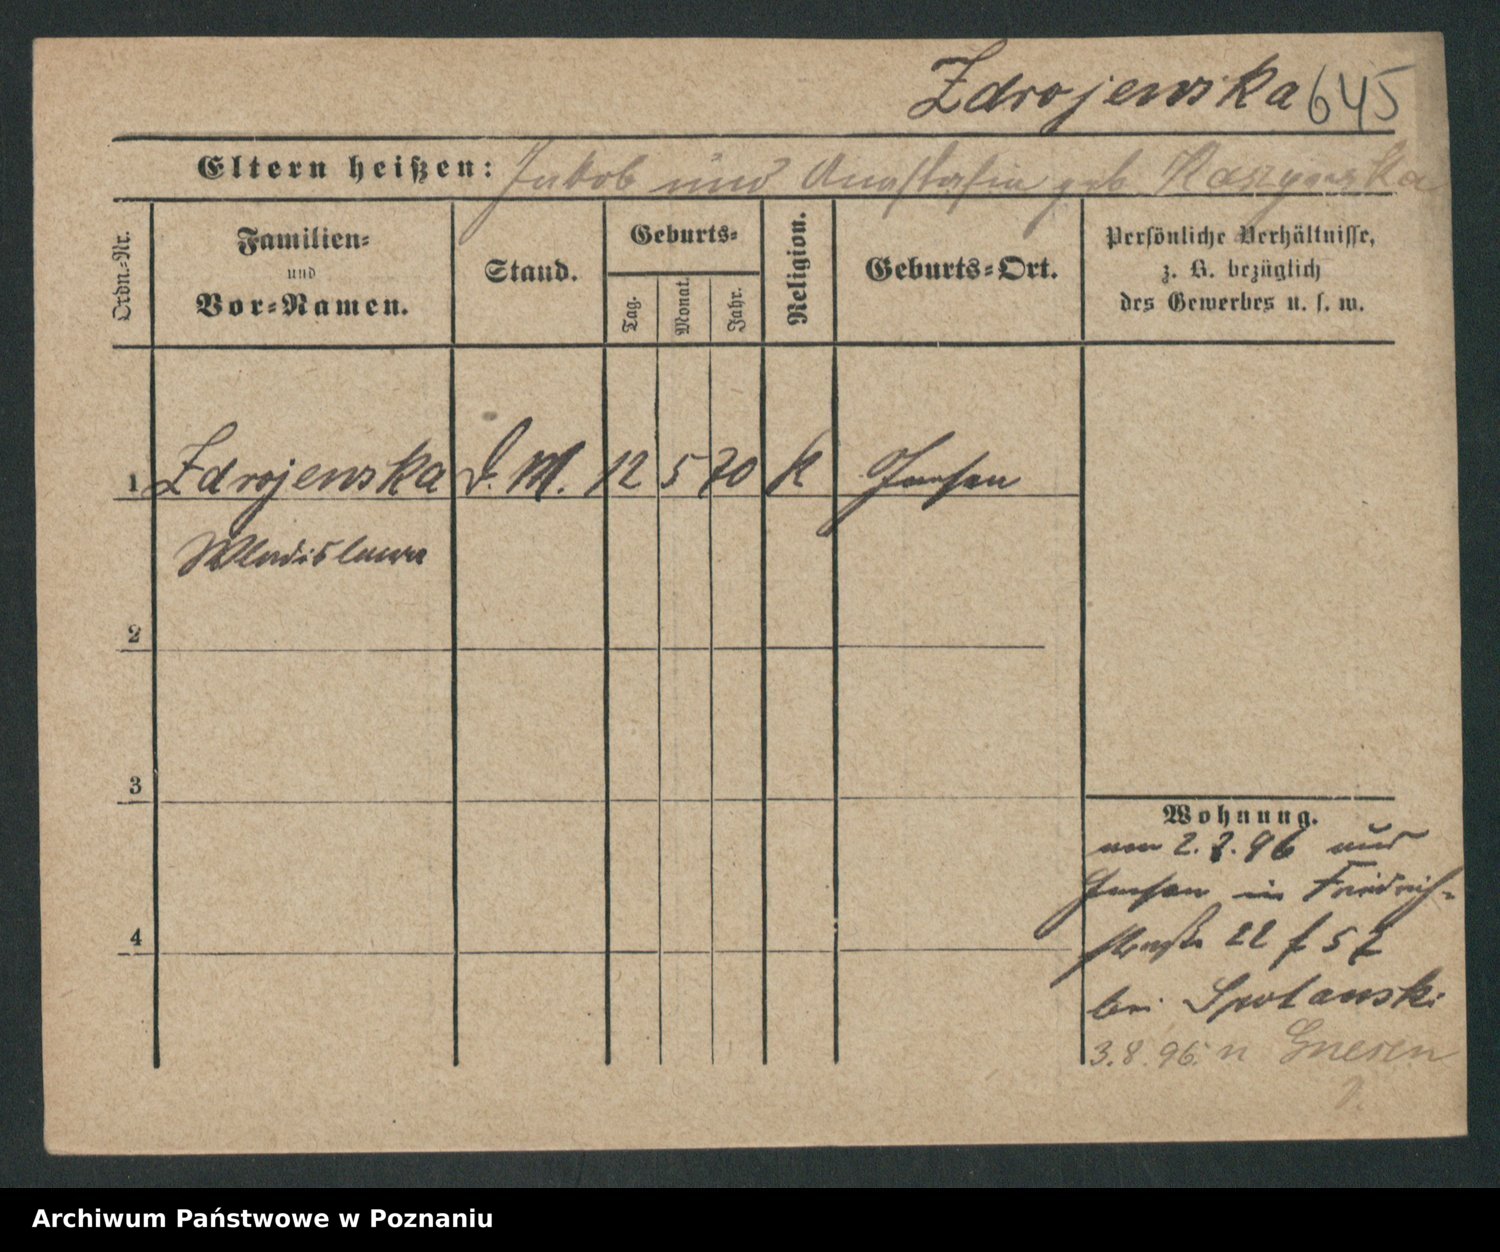 Zdrojewska 645
Eltern heißen: Jakob und Anastasia geb
Ordn=Nr.
Familien=
und
Vor=Namen.
Stand.
Geburts=
Tag.
Monat.
Jahr.
Religion.
Geburts=Ort.
Persönliche Verhältnisse,
z. B. bezüglich
des Gewerbes u. s. w.
1 Zdrojewska D. M. 12 5 70 K Gnesen
Wladislawa
2
3
4
Wohnung.
von 2. 7. 96 aus
Gnesen in Friedrich=
straße 22
bei
3. 8. 96. n Gnesen
Archiwum Państwowe w Poznaniu